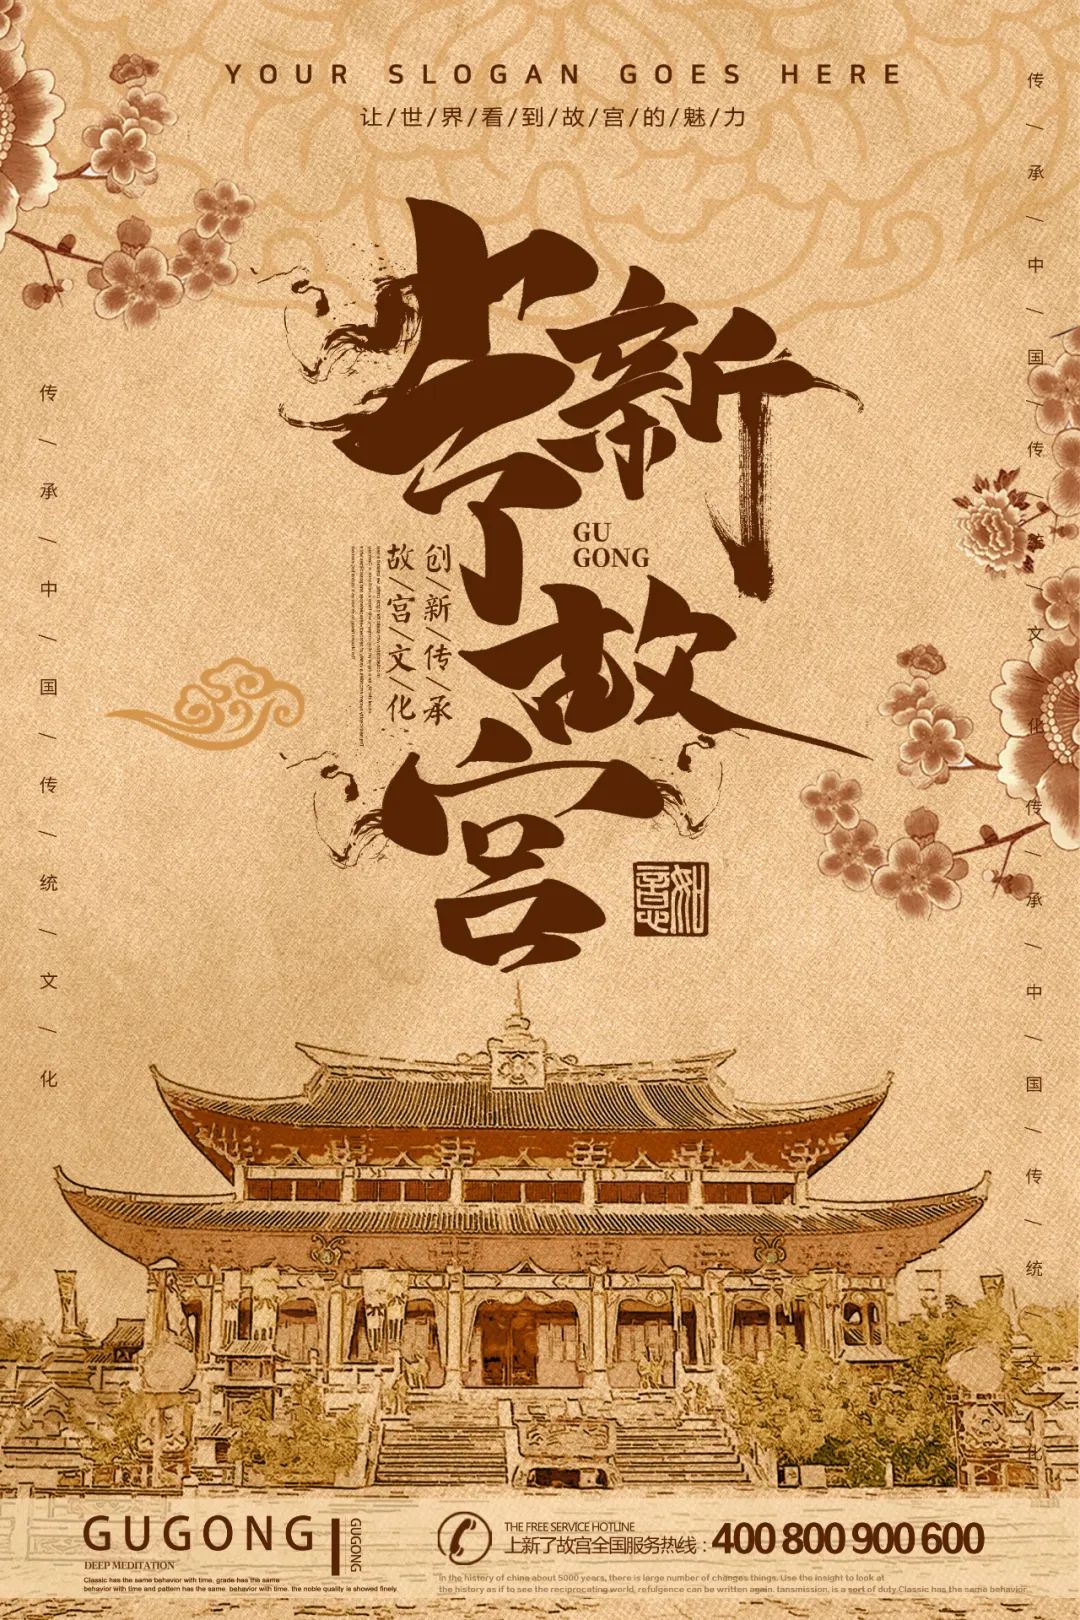 YOUR SLOGAN GOES HERE
让/世/界/看/到/故/宫/的/魅/力
上新了故宫
GU
GONG
创/新/传/承
故/宫/文/化
如意
传/承/中/国/传/统/文/化
传/承/中/国/传/统/文/化/传/承/中/国/传/统/文/化
GUGONG
GUGONG
DEEP MEDITATION
Classic has the same behavior with time, grade has the same
behavior with time and pattern has the same behavior with time. the noble quality is showed finely.
THE FREE SERVICE HOTLINE
上新了故宫全国服务热线：400 800 900 600
In the histery of china about 5000 years, there is large number of changes things. Use the insight to look at
the history as if to see the reciprocating world, refulgence can be written again. tansmission, is a sort of duty.Classic has the same behavior.